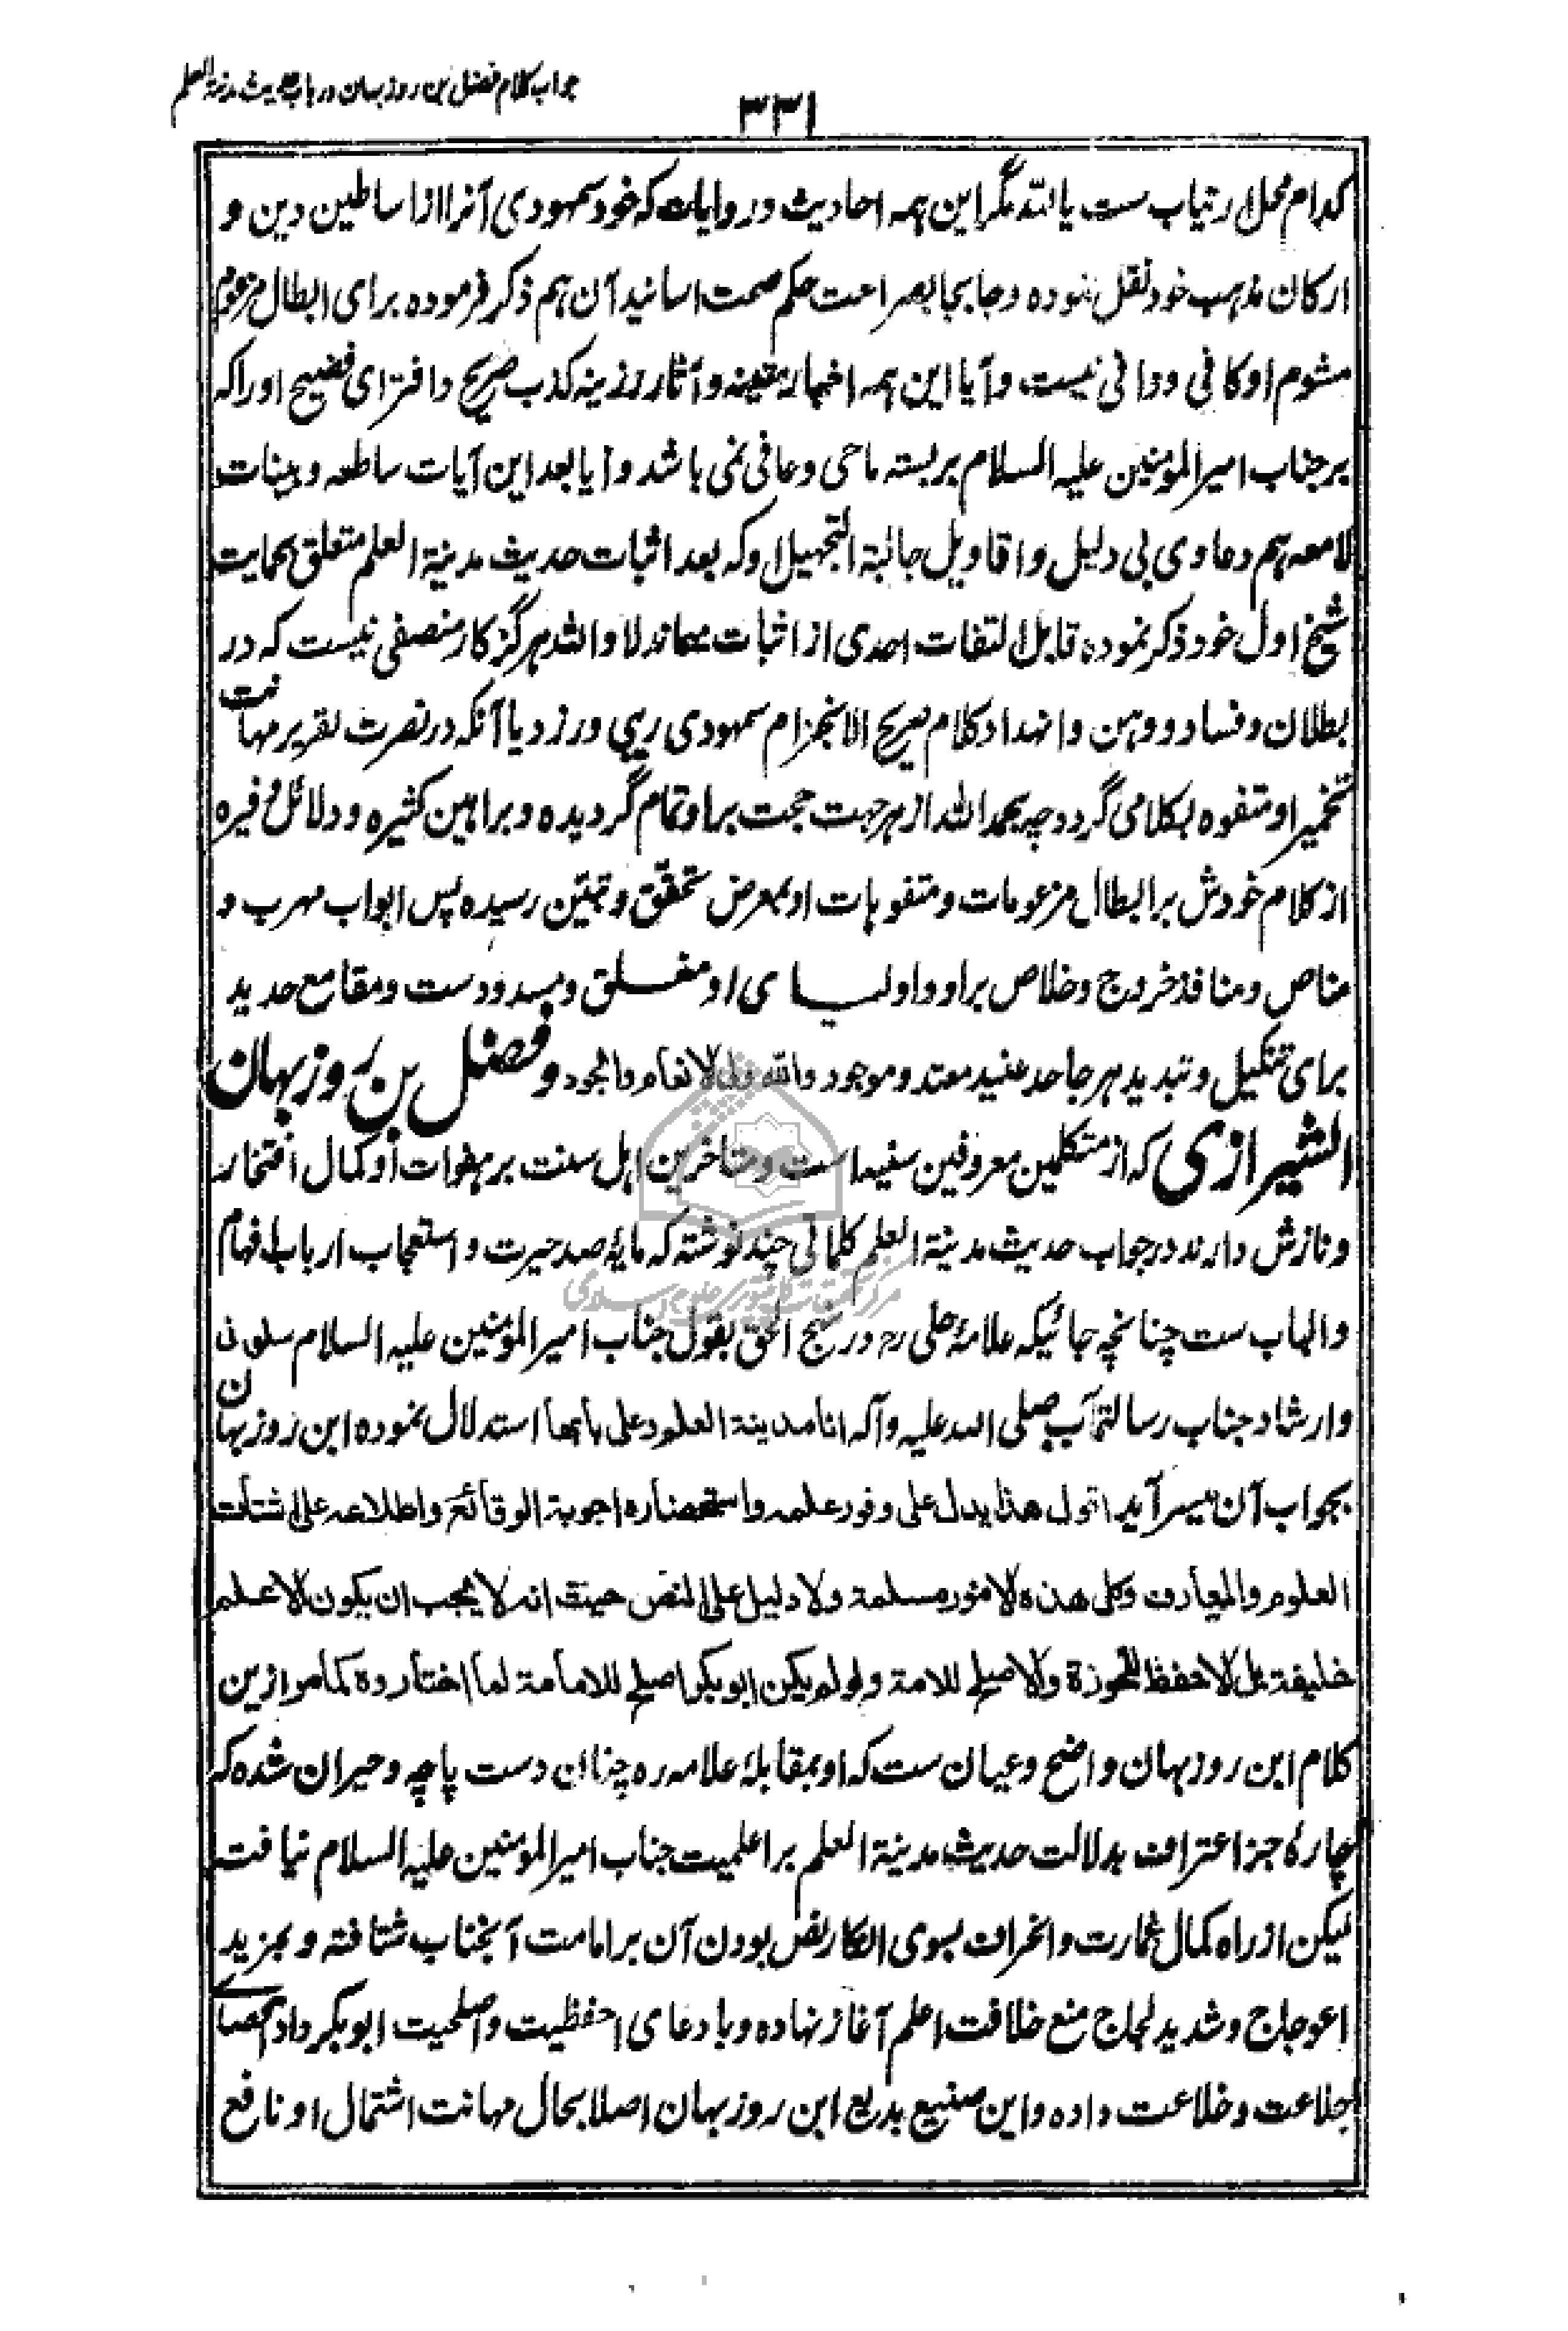 جواب کلام فضل بن روزبهان در باب حدیث مدینة العلم
۳۳۱
کدام محل ارتیاب ست یا للّه مگر این همه احادیث و روایات که خود سمهودی آنرا از اساطین دین و
ارکان مذهب خود نقل نموده و جابجا بصراحت حکم صحت اسانید آن هم ذکر فرموده برای ابطال مزعوم
مشوم او کافی و وافی نیست و آیا این همه اخبار متینه و آثار رزینه کذب صریح و افترای فضیح او را که
بر جناب امیر المؤمنین علیه السلام بربسته ماحی و عافی نمی باشد و آیا بعد این آیات ساطعه و بینات
لامعه هم دعاوی بی دلیل و اقاویل جالبة التجهیل او که بعد اثبات حدیث مدینة العلم متعلق بحمایت
شیخ اول خود ذکر نموده قابل التفات احدی از اثبات میماند لا والله هرگز کار منصفی نیست که در
بطلان و فساد و وهن و انهداد کلام صریح الانجزام سمهودی ریبی ورزد یا آنکه در نصرت تقریر مهانت
تخمیر او متفوه بکلامی گردد چه بحمد الله از هر جهت حجت بر او تمام گردیده و براهین کثیره و دلائل وفیره
از کلام خودش بر ابطال مزعومات و متفوهات او بمعرض تحقّق و تبیّن رسیده پس ابواب مهرب و
مناص و منافذ خروج و خلاص بر او و اولیای او مغلق و مسدودست و مقامع حدید
برای تنکیل و تبدید هر جاحد عنید معتد و موجود والله ولی الانعام والجود و فضل بن روزبهان
الشیرازی که از متکلمین معروفین سنیه است و متاخرین اهل سنت بر هفوات او کمال افتخار
و نازش دارند در جواب حدیث مدینة العلم کلماتی چند نوشته که مایهٔ صد حیرت و استعجاب ارباب افهام
و الباب ست چنانچه جائیکه علامهٔ حلی ره در نهج الحق بقول جناب امیر المؤمنین علیه السلام سلونی
و ارشاد جناب رسالتمآب صلی الله علیه وآله انا مدینة العلم وعلی بابها استدلال نموده ابن روزبهان
بجواب آن میسرآید اقول هذا یدل علی وفور علمه واستحضاره اجوبة الوقائع واطلاعه علی اشتات
العلوم والمعارف وکل هذه الامور مسلمة ولا دلیل علی النص حیث انه لا یجب ان یکون الاعلم
خلیفة بل الاحفظ للحوزة والاصلح للامة ولو لم یکن ابو بکر اصلح للامامة لما اختاروه کما مر ازین
کلام ابن روزبهان واضح و عیان ست که او بمقابلهٔ علامه ره چنان دست پاچه و حیران شده که
چارهٔ جز اعتراف بدلالت حدیث مدینة العلم بر اعلمیت جناب امیر المؤمنین علیه السلام نیافت
لیکن از راه کمال غمارت و انحراف بسوی انکار نص بودن آن بر امامت آنجناب شتافته و بمزید
اعوجاج و شدید لجاج منع خلافت اعلم آغاز نهاده و با دعای احفظیت و اصلحیت ابو بکر داد اقصای
جلاعت و خلاعت داده و این صنیع بدیع ابن روزبهان اصلا بحال مهانت اشتمال او نافع